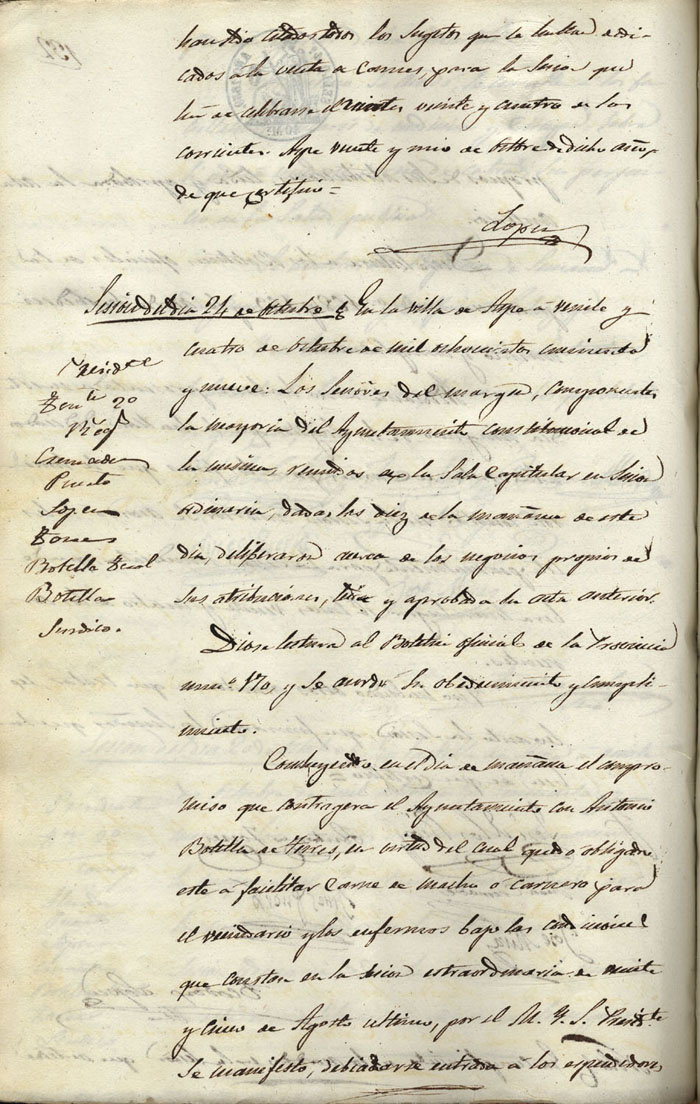 han sido citados todos los sugetos que se hallan dedi-
cados a la venta de carnes, para la sesion que
ha de celebrarse el viernes veinte y cuatro de los
corrientes. Aspe veinte y uno de 8tbre de dicho año,
de que certifico=
Lopez
Sesion del dia 24 de Octubre
En la villa de Aspe à veinte y
cuatro de Octubre de mil ochocientos cincuenta
y nueve: Los Señores del margen, componentes
la mayoria del Ayuntamiento constitucional de
la misma, reunidos en la Sala Capitular en Sesion
ordinaria, dadas las diez de la mañana de este
dia, deliberaron acerca de los negocios propios de
sus atribuciones, leida y aprobada la acta anterior.
Presid.te
Ten.te 2o
Cremades
Puerto
Lopez
Torres
Botella
Botella
Sindico.
Diose lectura al Boletin oficial de la Provincia
num.o 170 y se acordó su obedecimiento y cumpli-
miento.
Concluyendo en el dia de mañana el compro-
miso que contragera el Ayuntamiento con Antonio
Botella de Torres, en virtud del cual quedó obligado
este a facilitar carne de macho o carnero para
el vecindario y los enfermos bajo las condiciones
que constan en la sesion estraordinaria de veinte
y cinco de Agosto ultimo, por el M. Y. S. Presid.te
se manifestó, debia darse entrada a los espendedores